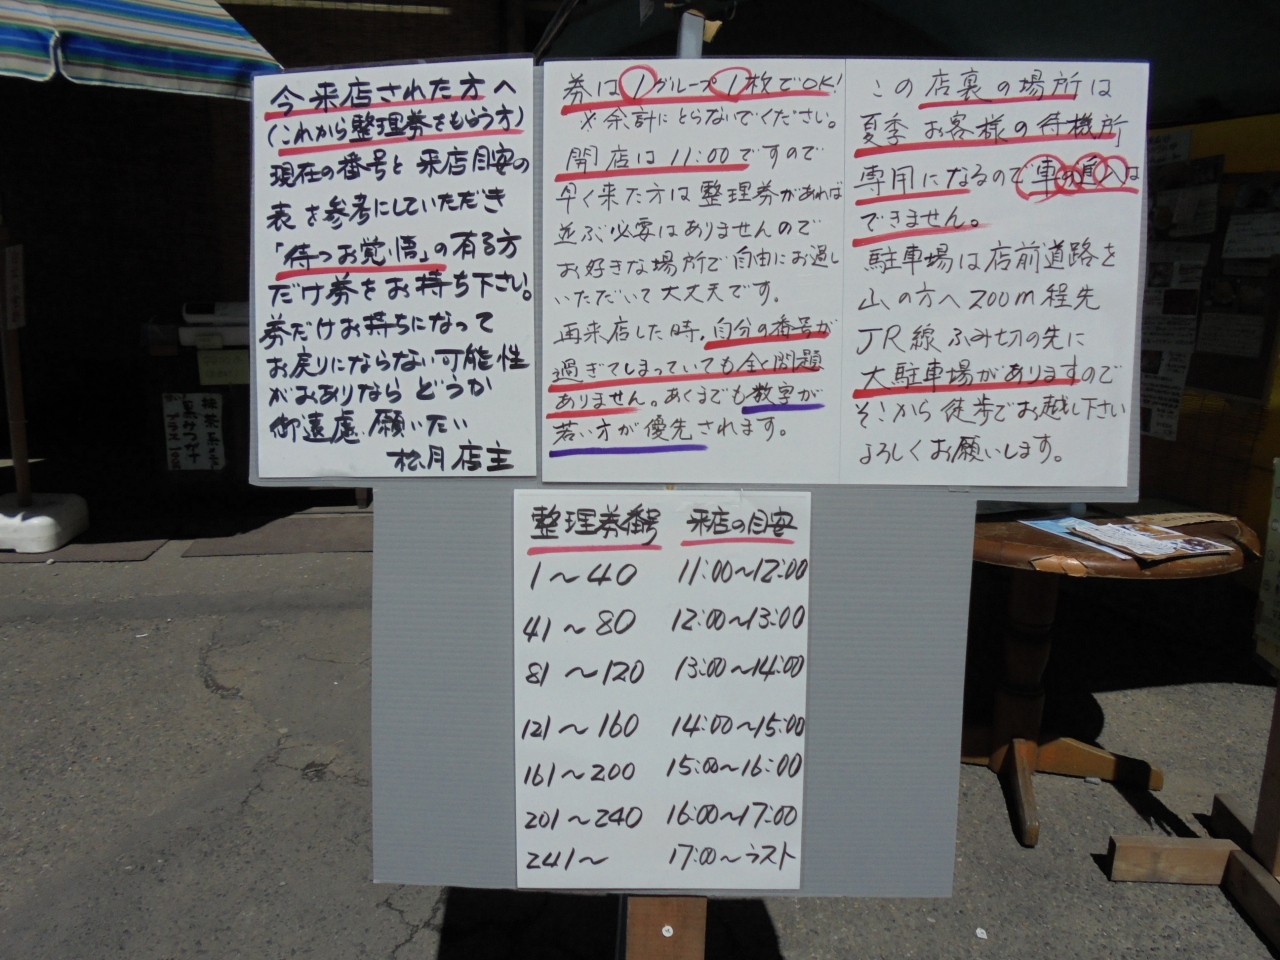 今来店された方へ
(これから整理券をもらう方)
現在の番号と来店目安の
表を参考にしていただき
「待つお覚悟」の有る方
だけ券をお持ち下さい。
券だけお持ちになって
お戻りにならない可能性
がおありならどうか
御遠慮願いたい
松月店主
券は1グループ1枚でOK!
※余計にとらないでください。
開店は11:00ですので
早く来た方は整理券があれば
並ぶ必要はありませんので
お好きな場所で自由にお過し
いただいて大丈夫です。
再来店した時、自分の番号が
過ぎてしまっていても全く問題
ありません。あくまでも数字が
若い方が優先されます。
この店裏の場所は
夏季お客様の待機所
専用になるので車の直入は
できません。
駐車場は店前道路を
山の方へ200m程先
JR線ふみ切の先に
大駐車場がありますので
そこから徒歩でお越し下さい
よろしくお願いします。
整理券番号 来店の目安
1〜40 11:00〜12:00
41〜80 12:00〜13:00
81〜120 13:00〜14:00
121〜160 14:00〜15:00
161〜200 15:00〜16:00
201〜240 16:00〜17:00
241〜 17:00〜ラスト